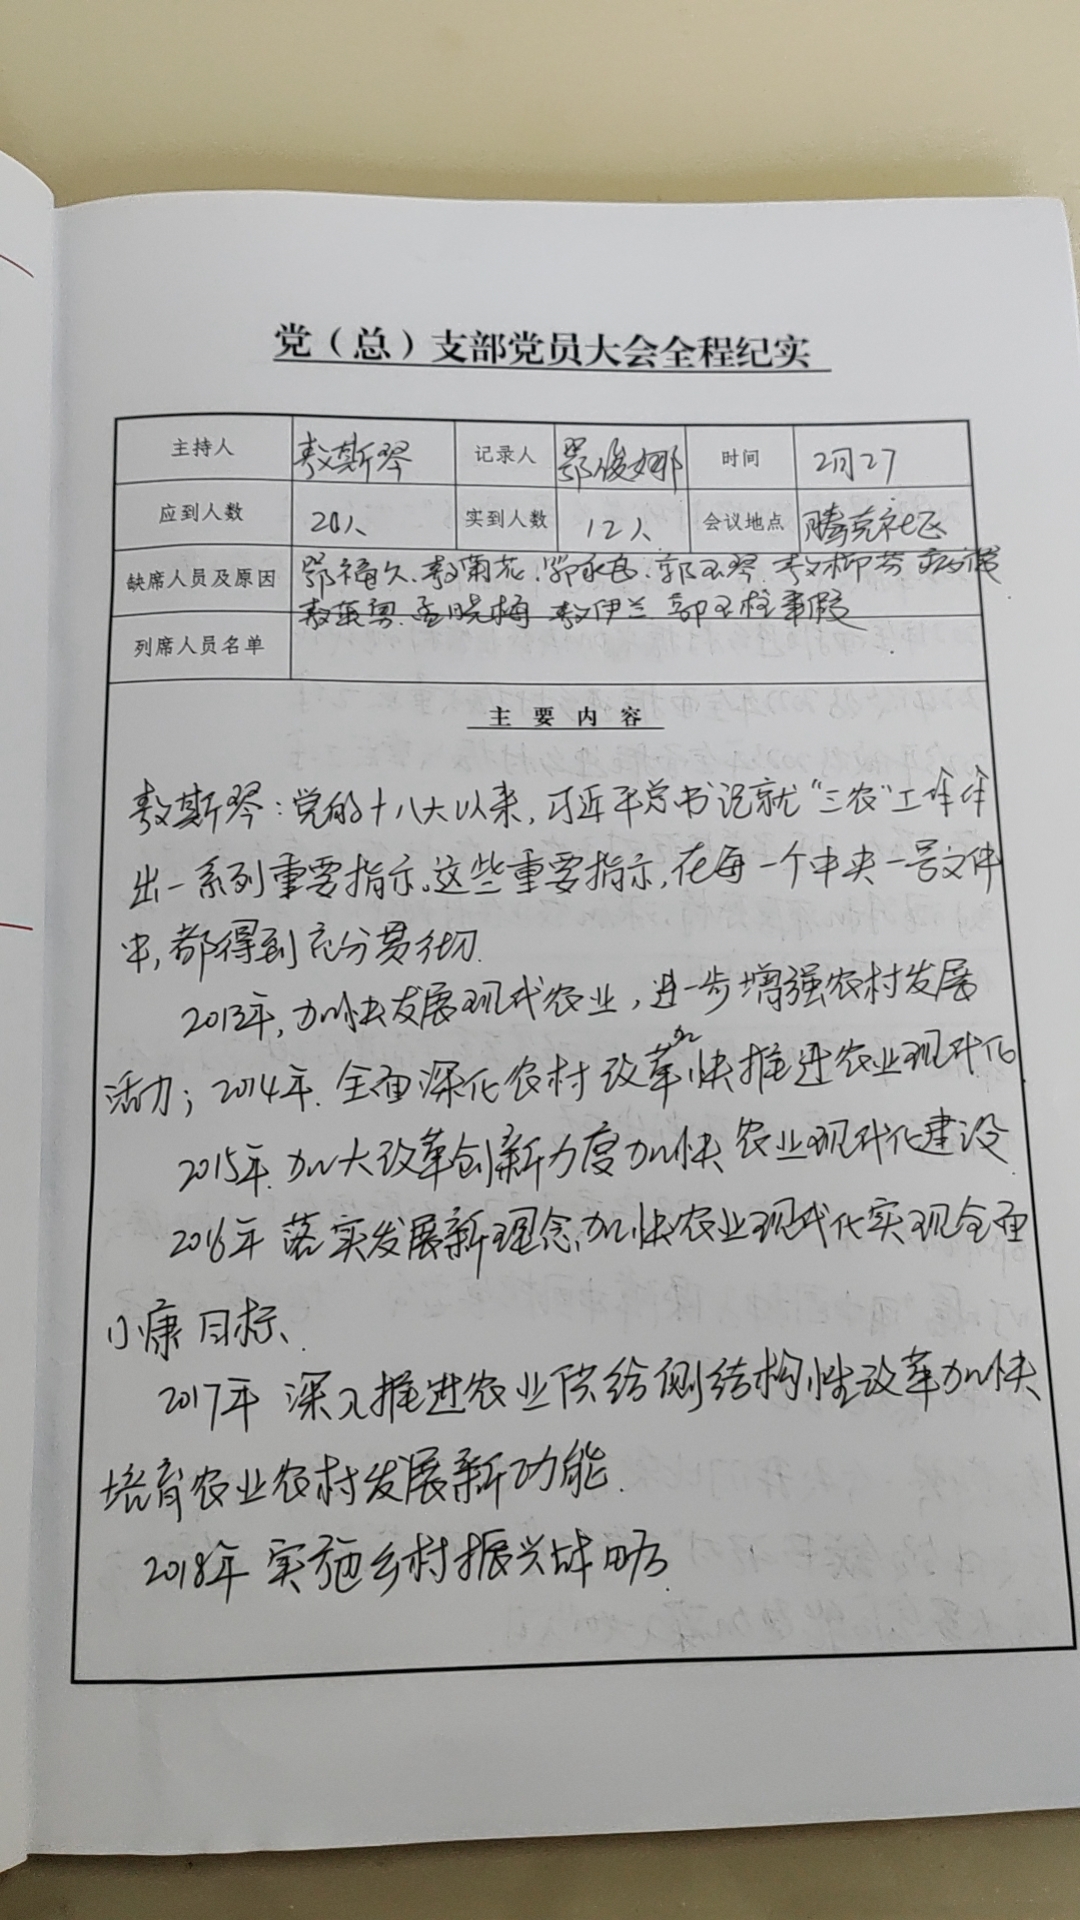 党（总）支部党员大会全程纪实
主持人 敖斯琴 记录人 鄂俊娜 时间 2月27
应到人数 20人 实到人数 12人 会议地点 腾克社区
缺席人员及原因 鄂福久、敖菊花、郭玉琴、敖柳芳
孟晓梅 敖伊兰 郭玉柱 事假
列席人员名单
主要内容
敖斯琴：党的十八大以来，习近平总书记就“三农”工作作
出一系列重要指示。这些重要指示，在每一个中央一号文件
中，都得到充分贯彻.
2013年，加快发展现代农业，进一步增强农村发展
活力；2014年.全面深化农村改革加快推进农业现代化
2015年.加大改革创新力度加快农业现代化建设
2016年落实发展新理念，加快农业现代化实现全面
小康目标、
2017年 深入推进农业供给侧结构性改革加快
培育农业农村发展新功能.
2018年 实施乡村振兴战略